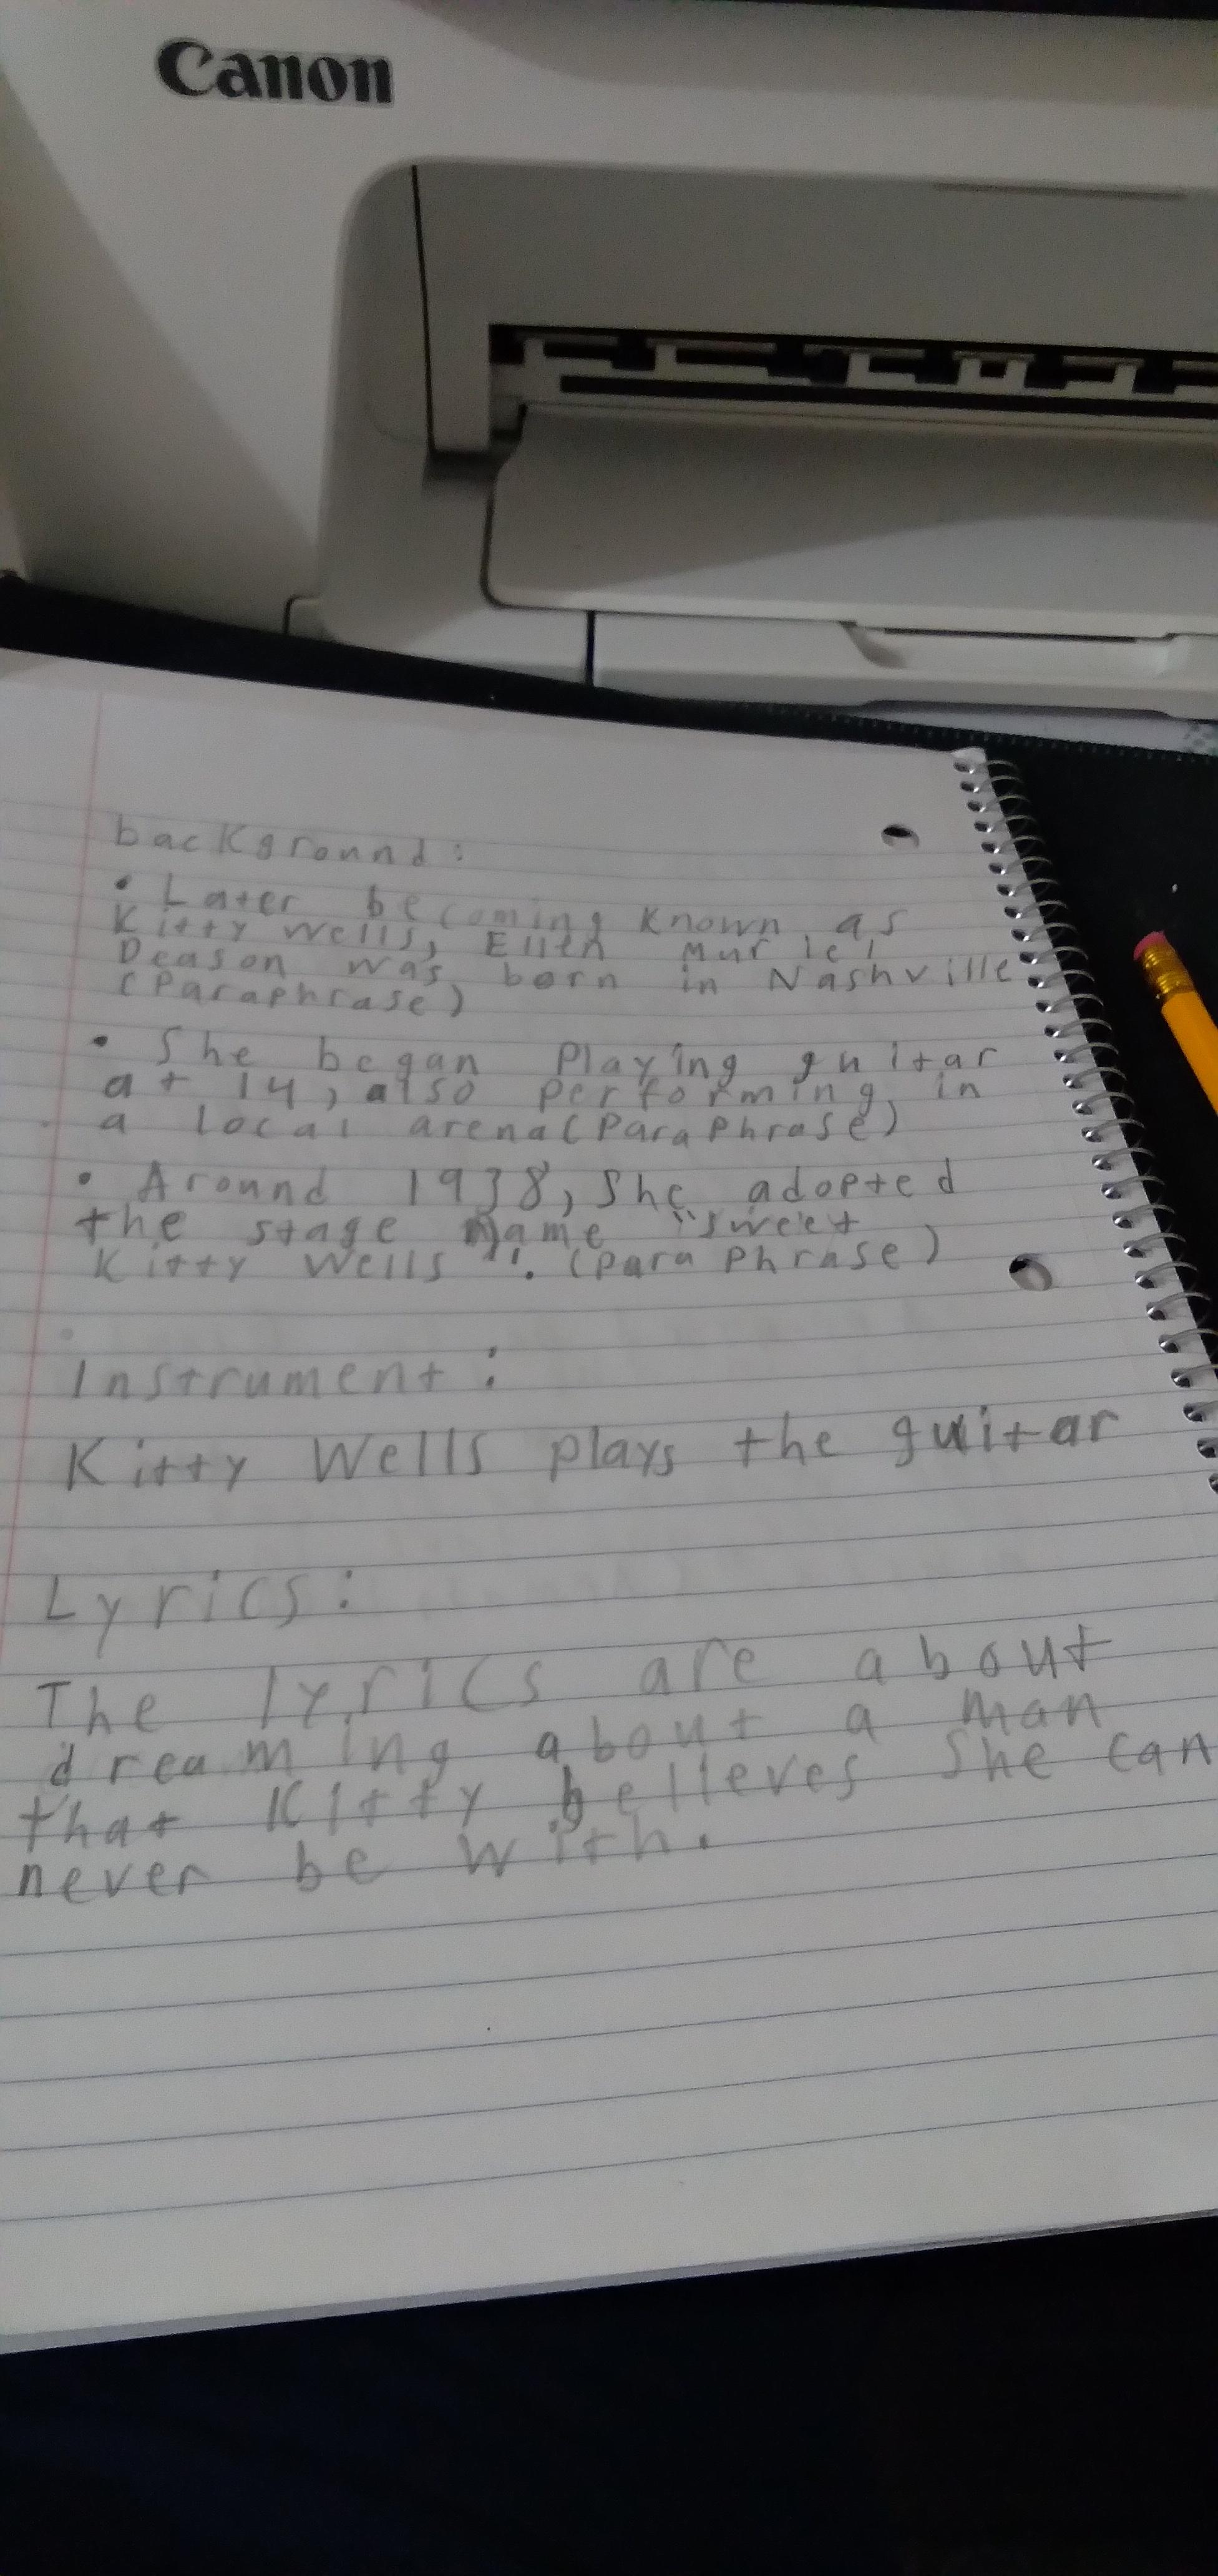 Canon
background:
• Later becoming known as
Kitty Wells, Ellen Muriel
Deason was born in Nashville
(Paraphrase)
• She began Playing guitar
at 14, also performing in
a local arena(Paraphrase)
• Around 1938, She adopted
the stage Name "sweet
Kitty Wells". (Paraphrase)
Instrument:
Kitty Wells plays the guitar
Lyrics:
The lyrics are about
dreaming about a man
that Kitty believes she can
never be with.